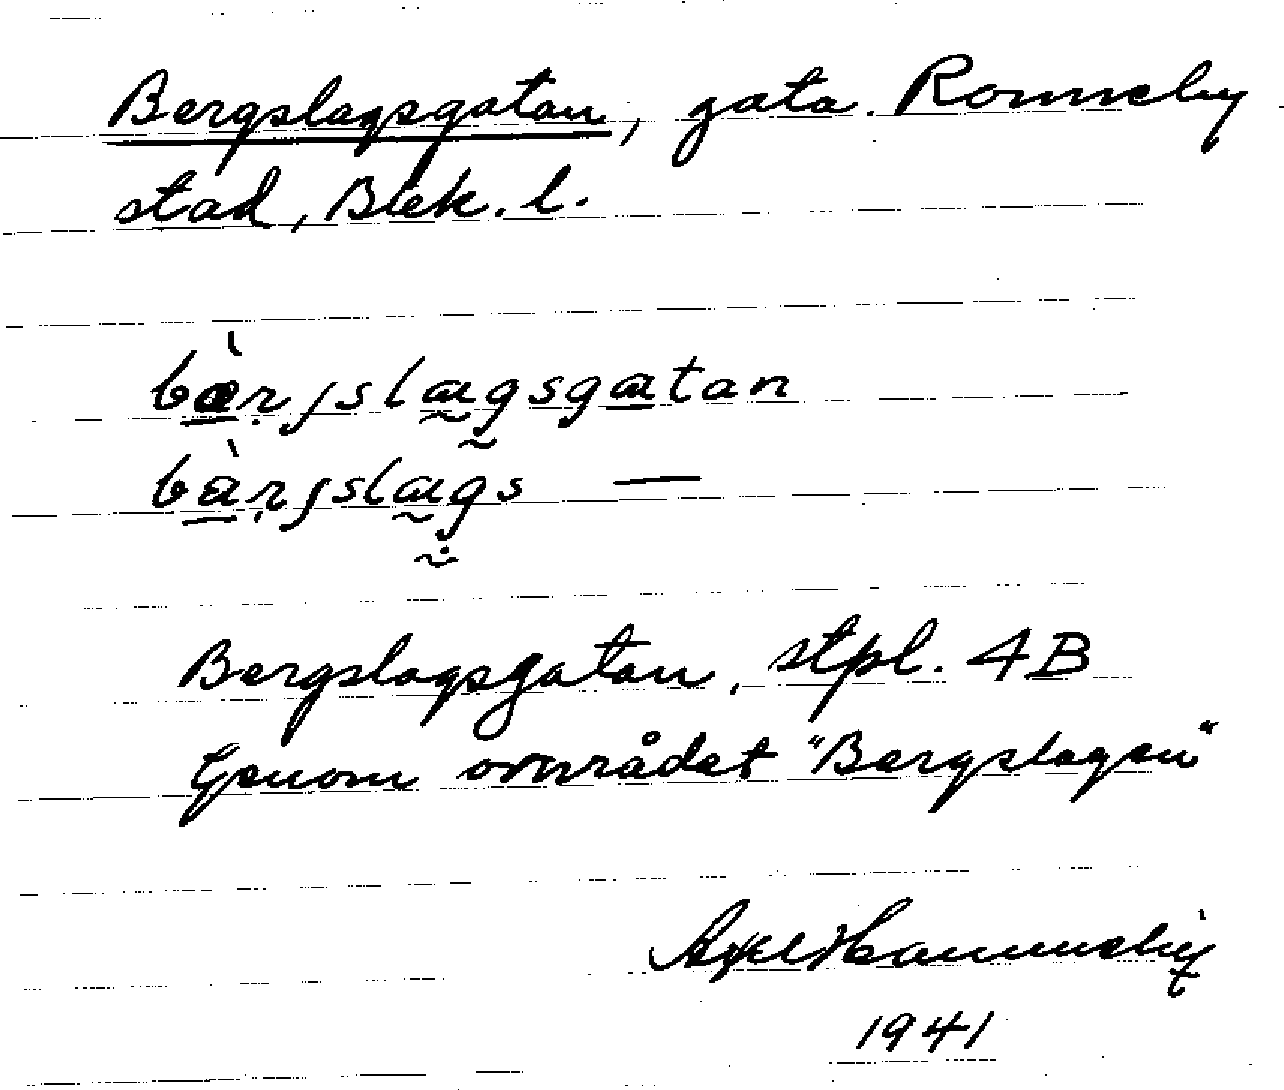 Bergslagsgatan, gata. Ronneby
stad, Blek. l.
bæ̀rjslagsgatan
bàrjslags —
Bergslagsgatan, stpl. 4B
Genom området "Bergslagen"
Axel
1941